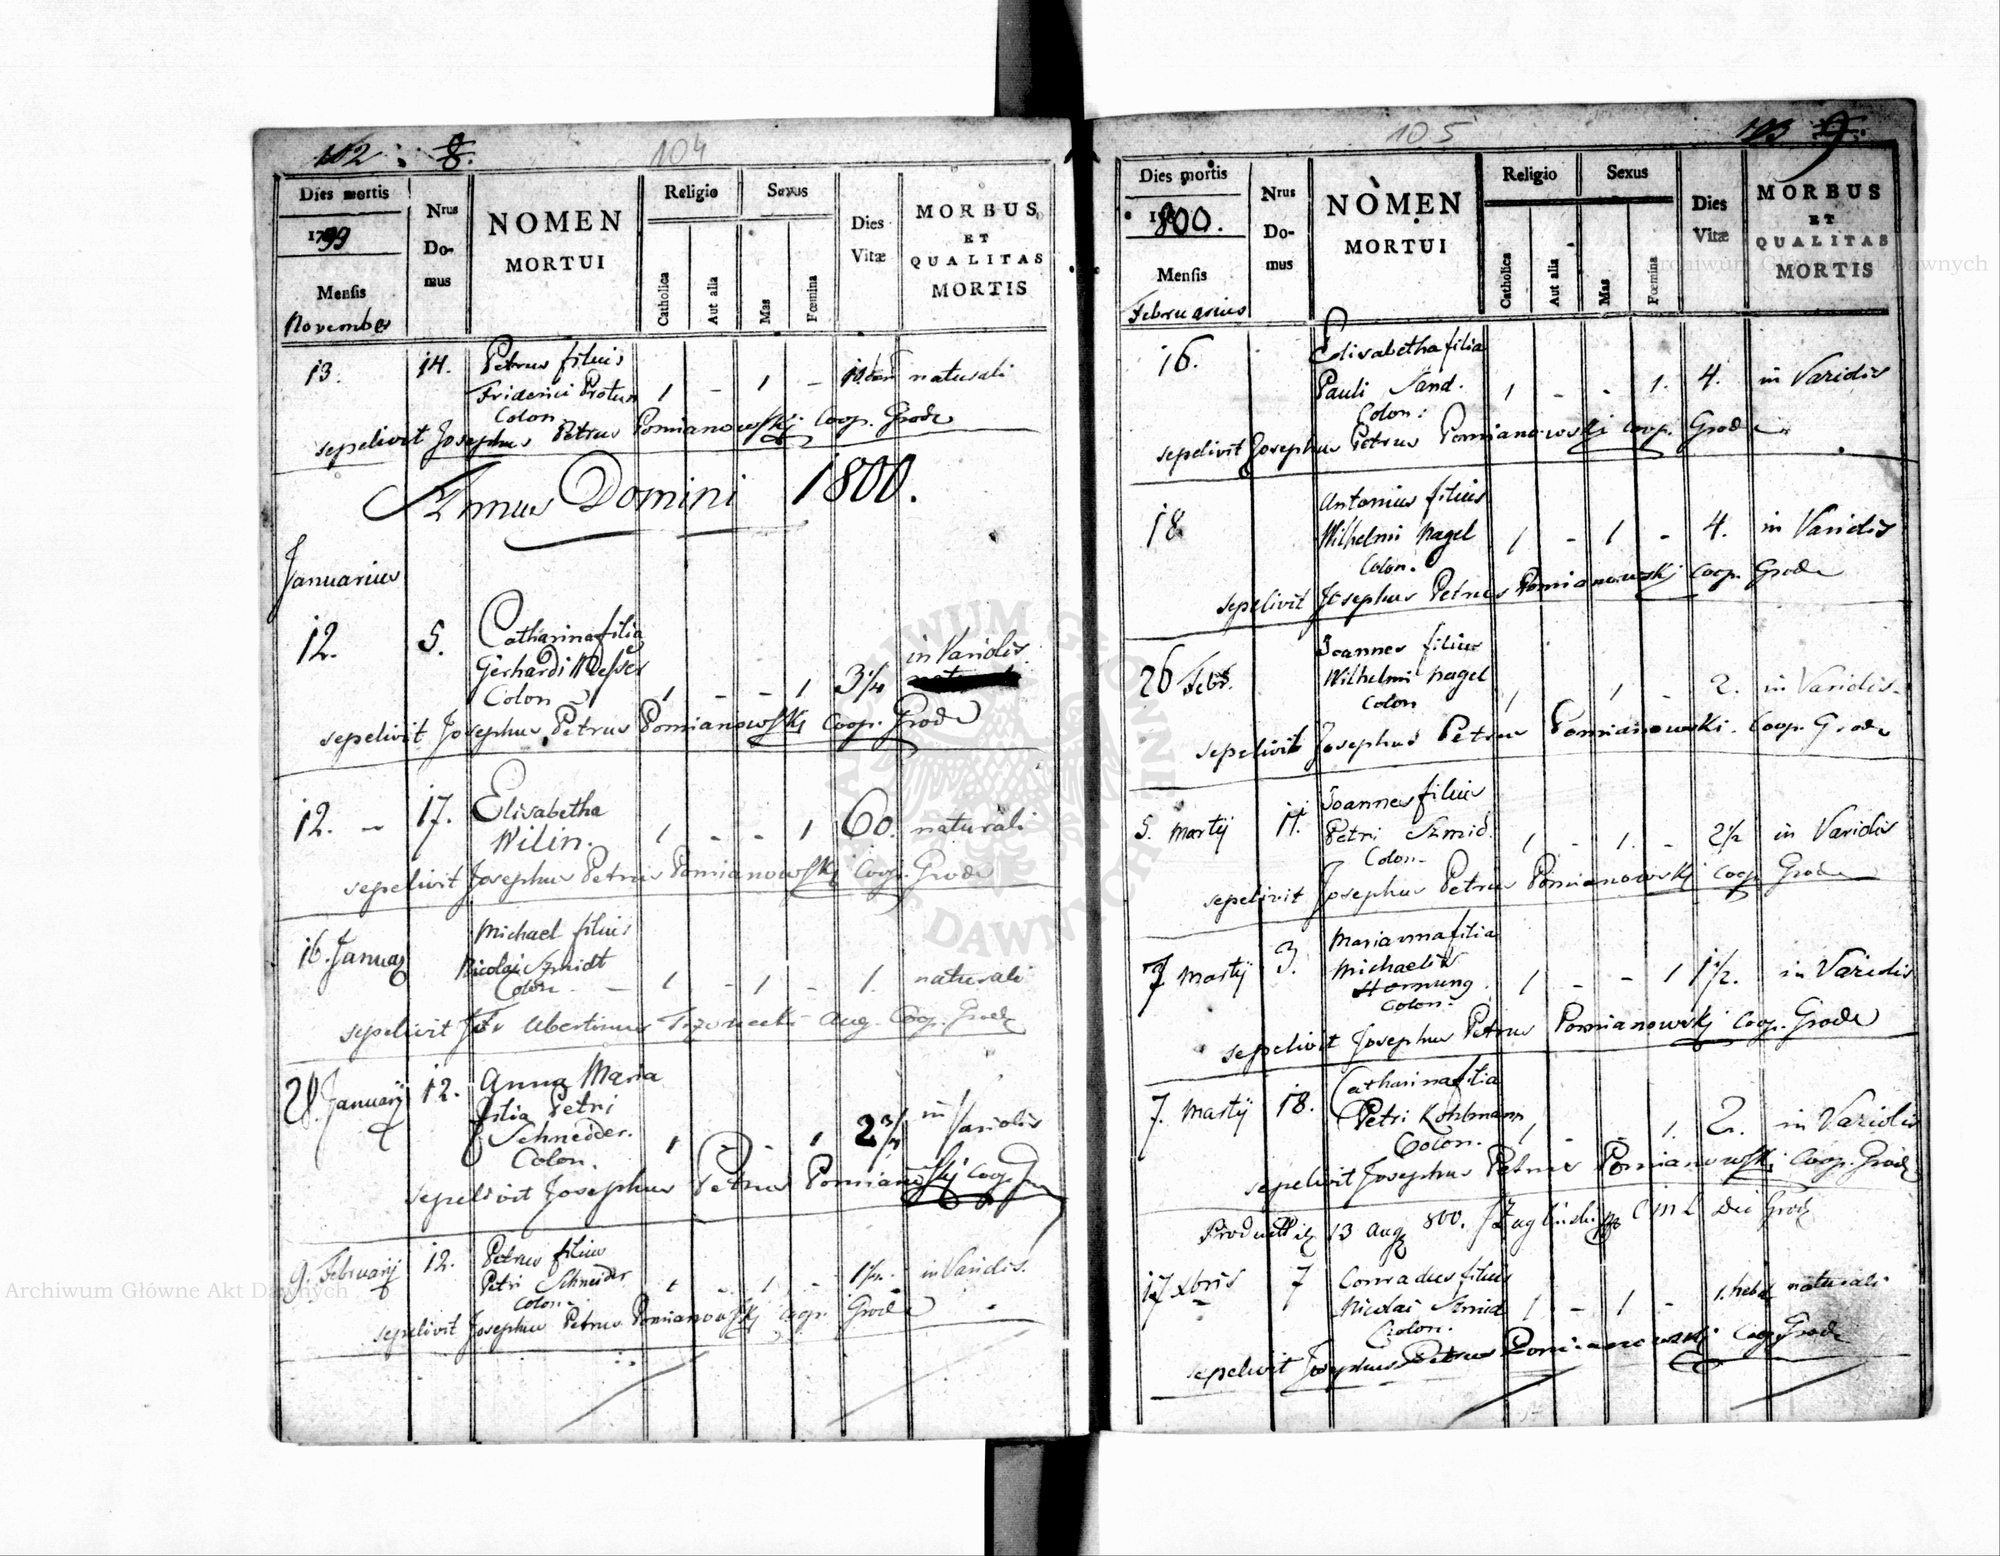 102 8.
104
Dies mortis
1799
Mensis
November
Nrus
Do-
mus
NOMEN
MORTUI
Religio
Catholica
Aut alia
Sexus
Mas
Fœmina
Dies
Vitæ
MORBUS
ET
QUALITAS
MORTIS
13. 14. Petrus filius
Friderici Protus 1 - 1 - naturali
Colon
sepelivit Josephus Petrus Pomianowskj Coop. Grode
Annus Domini 1800.
Januarius
12. 5. Catharina filia
in Variolis
Gerhardi Messer
Colon 1 - - 1 3 1/4
sepelivit Josephus Petrus Pomianowskj Coop. Grode
12. - 17. Elisabetha
Wilin. 1 - - 1 60. naturali
sepelivit Josephus Petrus Pomianowskj Coop. Grode
16. Januar Michael filius
Nicolai Szmidt
Colon - 1 - 1 - 1. naturali
sepelivit Fr Ubertinus Aug. Coop. Grodz
28 Januarij 12. Anna Maria
filia Petri
Schneider. 1 - - 1 2 3/4 in Variolis
Colon.
sepelivit Josephus Petrus Pomianowskj Coop
9. Februarij 12. Petrus filius
Petri Schneider 1 - 1 - in Variolis
Colon
sepelivit Josephus Petrus Pomianowskj Coop. Grode
103 9.
105
Dies mortis
1800.
Mensis
Februarius
Nrus
Do-
mus
NOMEN
MORTUI
Religio
Catholica
Aut alia
Sexus
Mas
Fœmina
Dies
Vitæ
MORBUS
ET
QUALITAS
MORTIS
16. Elisabetha filia
Pauli Sand. 1 - - 1. 4. in Variolis
Colon:
sepelivit Josephus Petrus Pomianowski coop. Grode
18. Antonius filius
Wilhelmi Nagel 1 - 1 - 4. in Variolis
Colon.
sepelivit Josephus Petrus Pomianowskj Coop. Grode
26 Febr. Joannes filius
Wilhelmi Nagel 1 1 - 2. in Variolis.
Colon
sepelivit Josephus Petrus Pomianowski. Coop. Grode
5. Martij 11. Joannes filius
Petri Szmid. 1 - 1. - 2 1/2 in Variolis
Colon.
sepelivit Josephus Petrus Pomianowskj Coop Grode
7 Martij 3. Marianna filia
Michaelis
Hornung 1 - - 1 1 1/2. in Variolis
Colon.
sepelivit Josephus Petrus Pomianowskj Coop. Grode
7. Martij 18. Catharina filia
Petri Kohlmann
Colon. 1 - - 1. 2. in Variolis
sepelivit Josephus Petrus Pomianowskj Coop. Grodz
13 Aug 800.
17 Xbris 7 Conradus filius
Nicolai Szmid 1 - 1 - 1. hebd naturali
Colon.
sepelivit Josephus Petrus Pomianowskj Coop Grode
ARCHIWUM GŁÓWNE AKT DAWNYCH
Archiwum Główne Akt Dawnych
Archiwum Główne Akt Dawnych